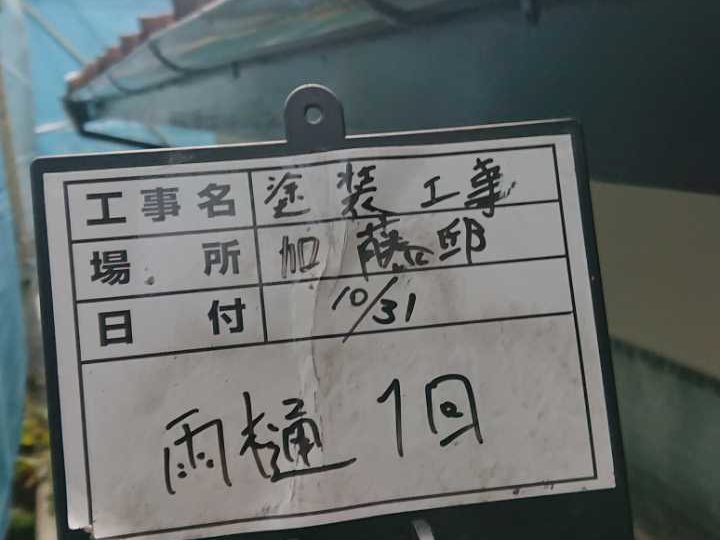 工事名 塗装工事
場所 加藤邸
日付 10/31
雨樋 1回